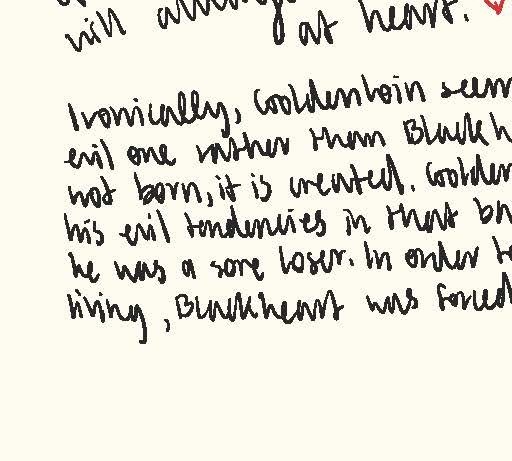 will always
at heart.
Ironically, Goldenloin seem
evil one rather than Blackh
not born, it is created. Golden
his evil tendencies in that
he was a sore loser. In order to
living, Blackheart was forced